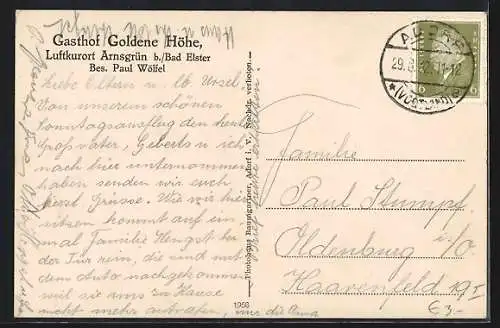 Gasthof Goldene Höhe,
Luftkurort Arnsgrün b./Bad Elster
Bes. Paul Wölfel
Liebe Eltern u. lb. Ursel.
Von unserem schönen
Sonntagsausflug den heute
Großvater, Geberts u. ich
nach hier unternommen
haben senden wir euch
herzl. Grüsse. Wie wir hier
sitzen kommt auf ein
mal Familie Hengst bei
der Tür rein, die sind mit
dem Auto nachgekommen
weil sie uns zu Hause
nicht mehr antrafen,
Photograph Baumgärtner, Adorf i. V. Nachdr. verboten.
1958
29.8.32.11-12
(VOGTLAND)
6
Familie
Paul Stumpf.
Oldenburg i/O.
Haarenfeld 19 I
€3.-